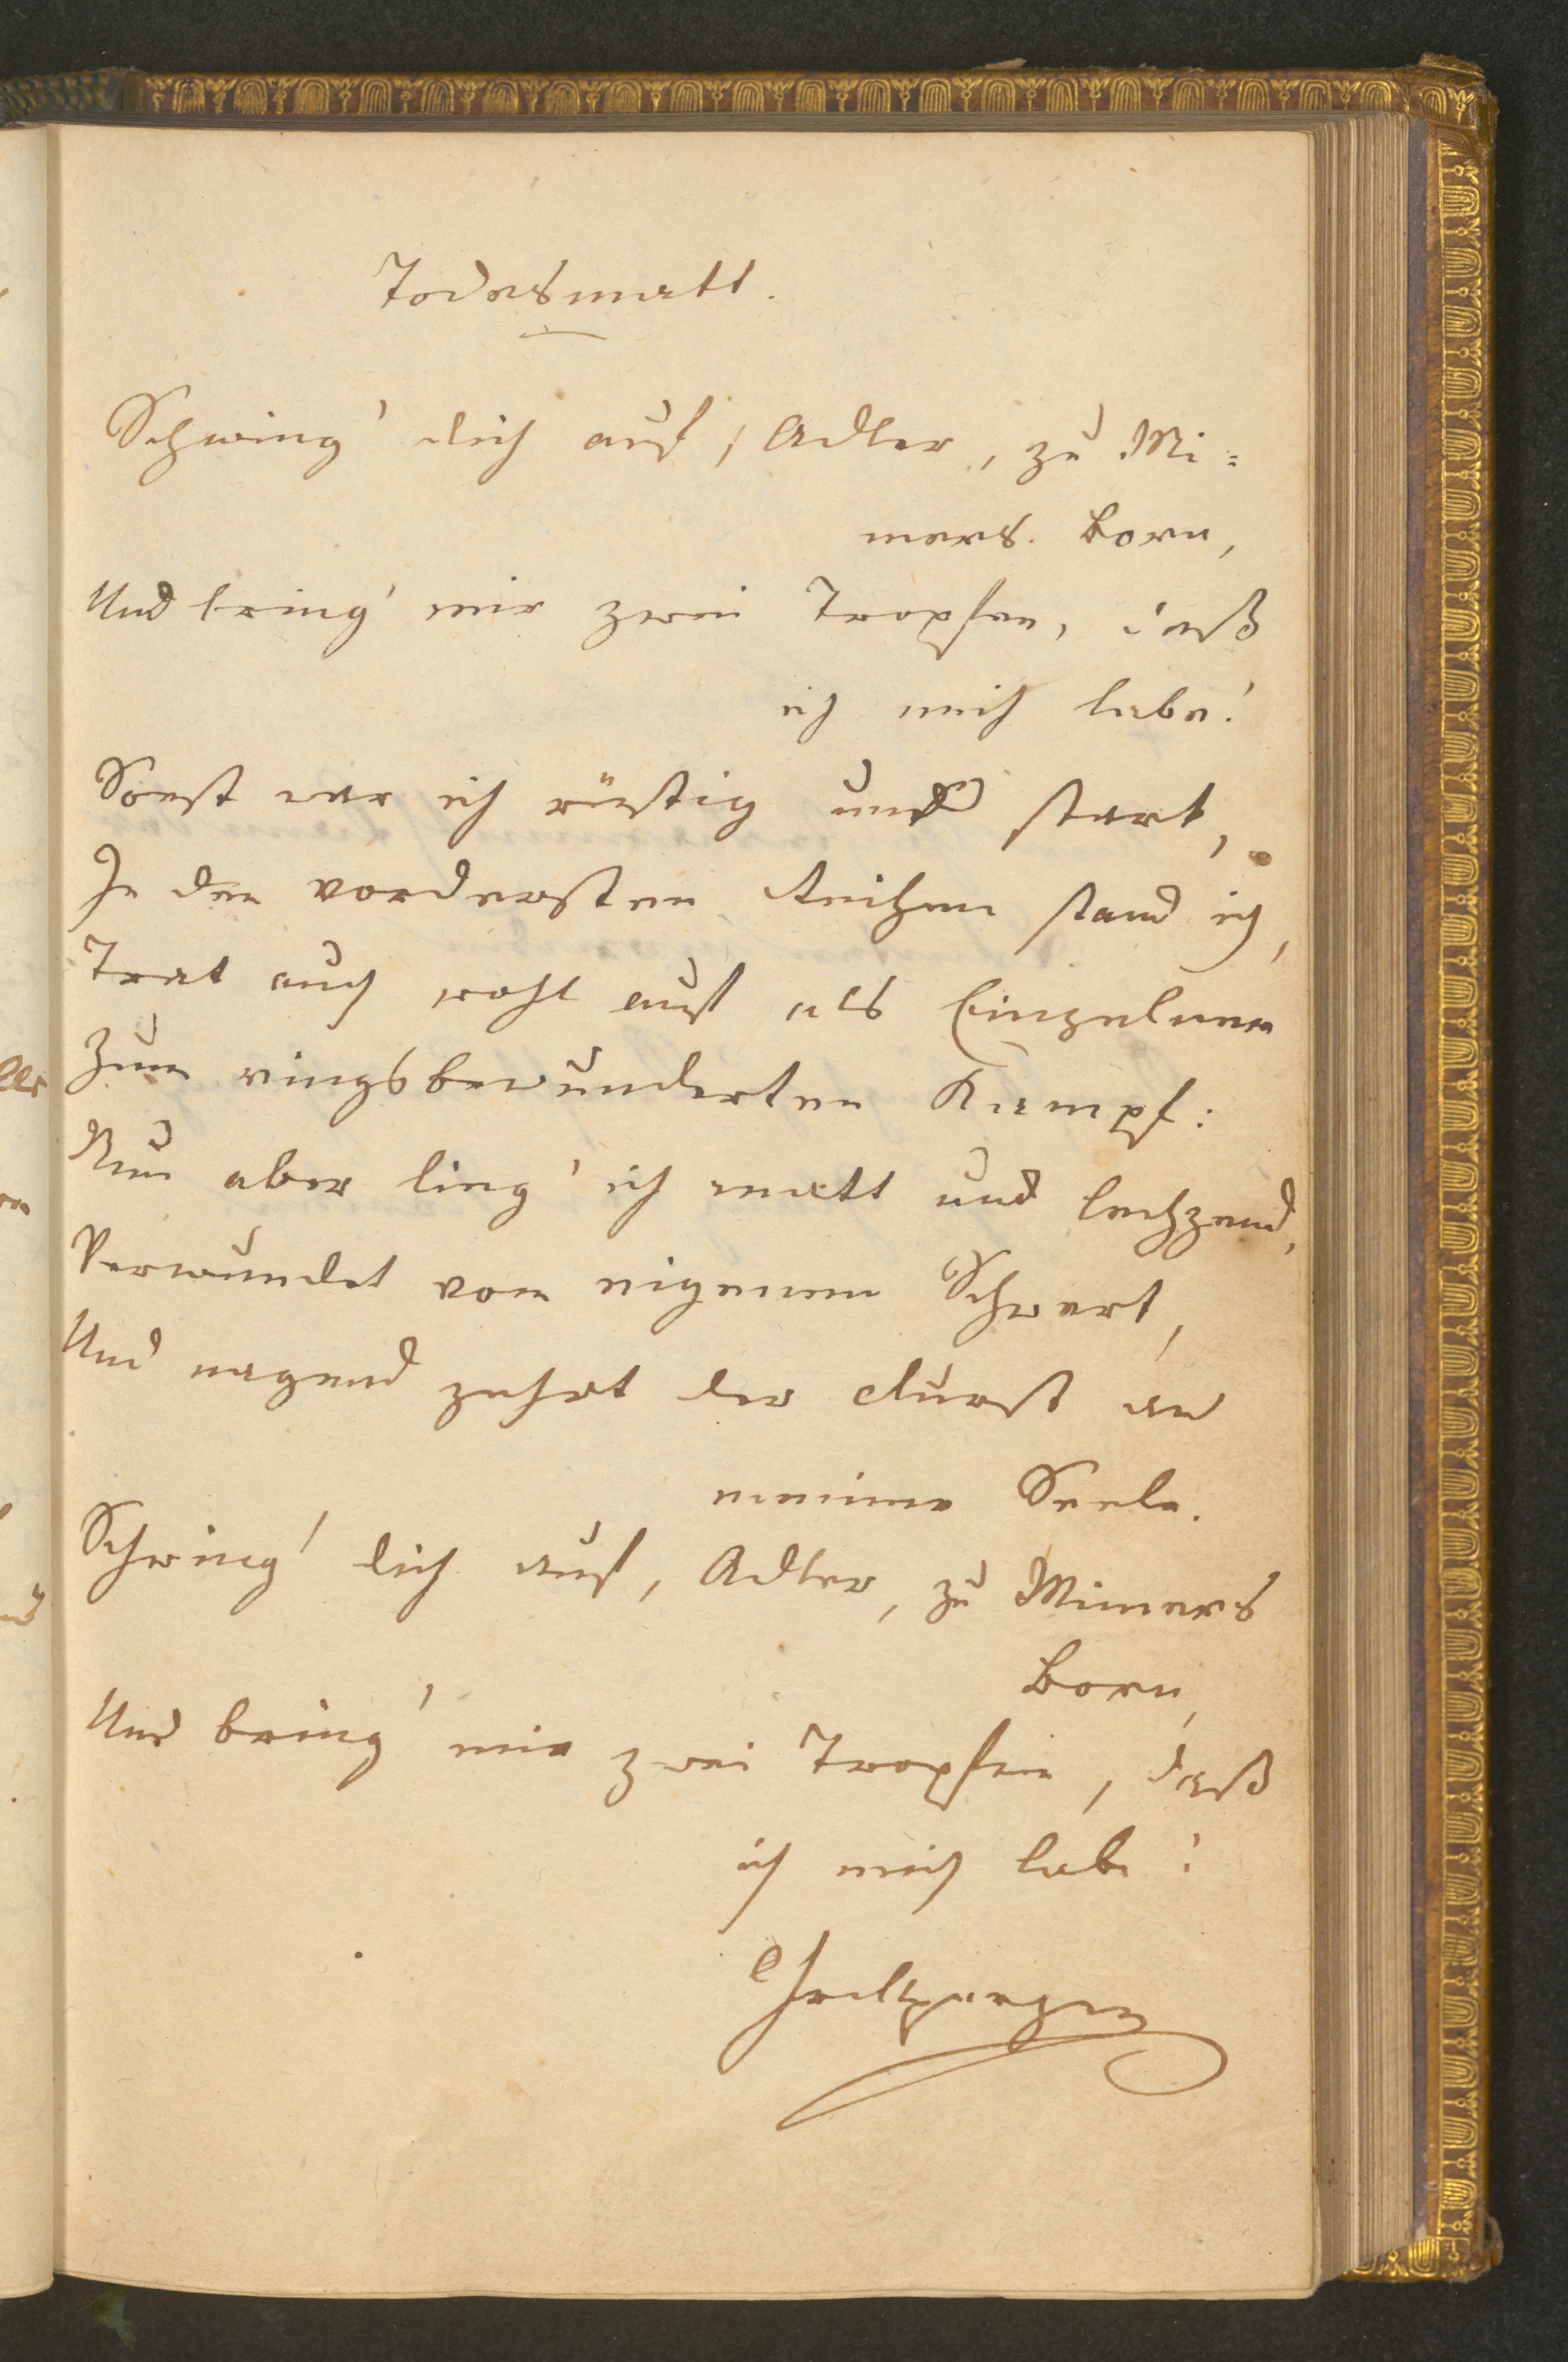 Todesmatt.
Schwing' dich auf, Adler, zu Mi=
mers Born,
Und bring' mir zwei Tropfen, daß
ich mich labe!
Sonst war ich rüstig und stark,
In den vordersten Reihen stand ich,
Trat auch wohl auf als Einzelner
Zum ringsbewunderten Kampf:
Nun aber lieg' ich matt und lechzend,
Verwundet vom eigenen Schwert,
Und nagend zehrt der Durst an
meiner Seele.
Schwing' dich auf, Adler, zu Mimers
Born,
Und bring' mir zwei Tropfen, daß
ich mich labe!